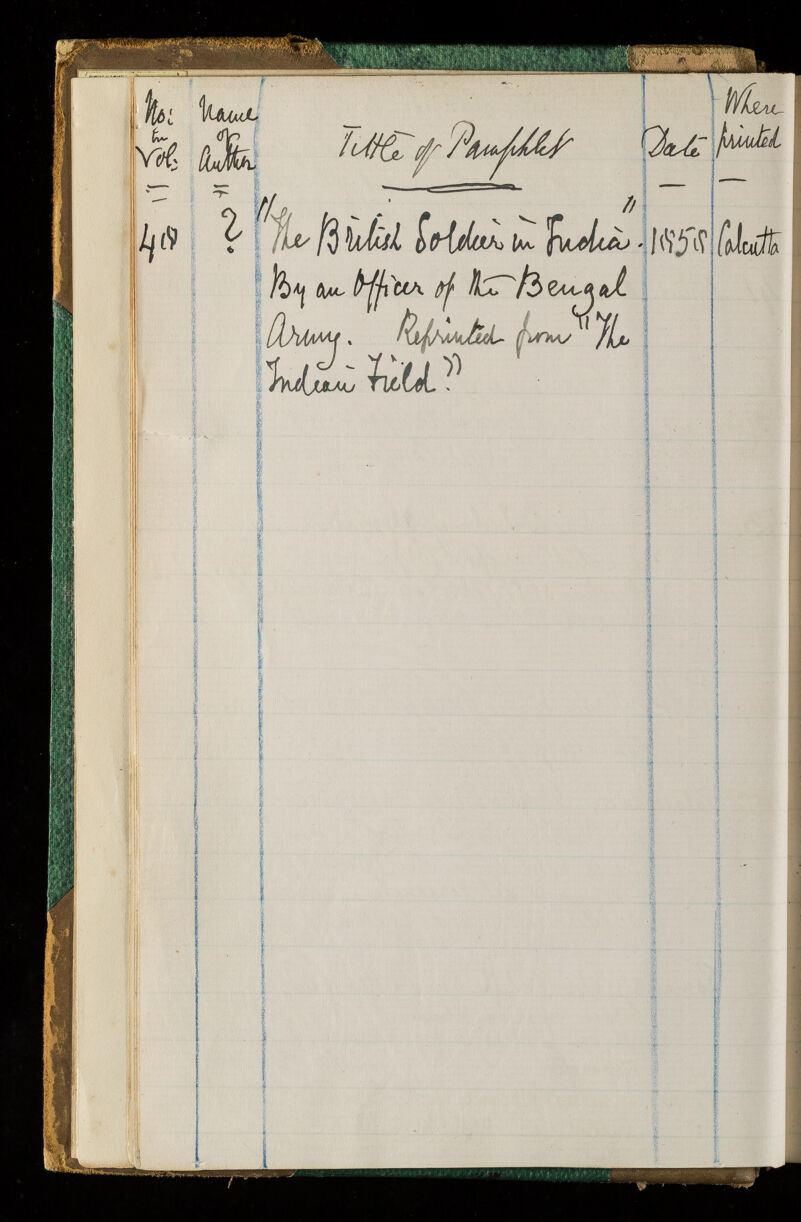 No: in Vol:
Name of Author
Tittle of Pamphlet
Date
Where printed
48 ? "The British Soldier in India". 1858 Calcutta
By an Officer of the Bengal
Army. Reprinted from "The
Indian Field."